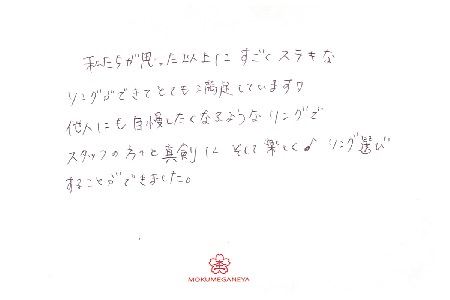 私たちが思った以上にすごくステキな
リングができてとても満足しています♡
他人にも自慢したくなるようなリングで
スタッフの方々と真剣に そして楽しく♪ リング選び
することができました。
MOKUMEGANEYA